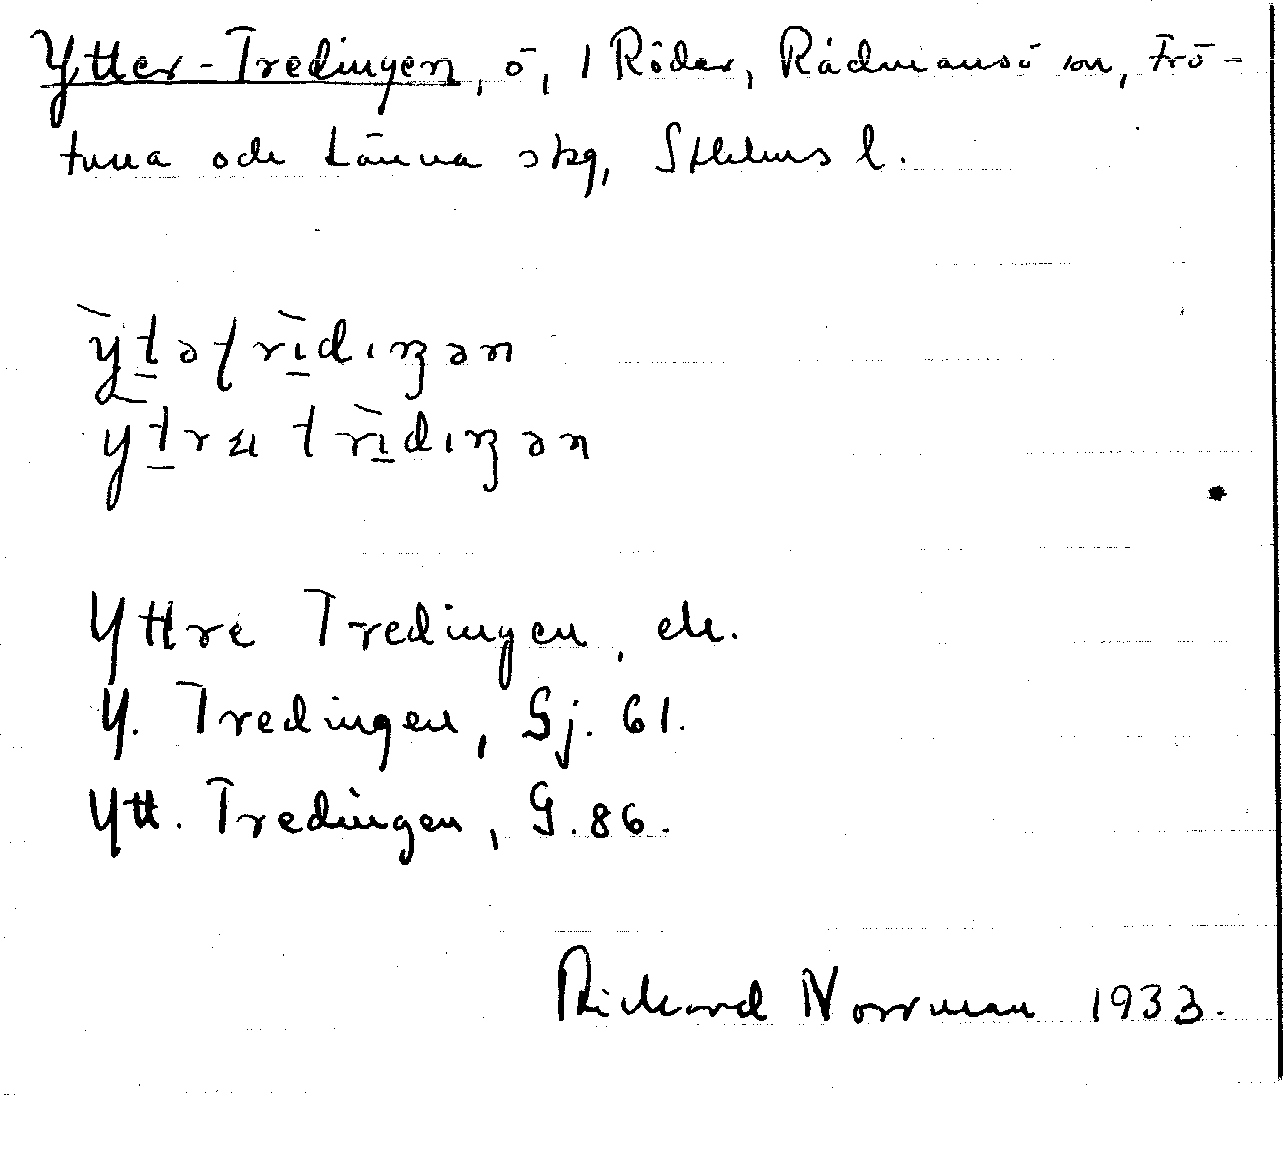 Ytter-Tredingen, ö, i Röder, Rådmansö sn, Frö-
tuna och Länna skg, Sthlms l.
ỳt̲ətrìdıŋən
ỳt̲ræ trìdıŋən
Yttre Tredingen, ek.
Y. Tredingen, Sj. 61.
Ytt. Tredingen, G. 86.
Rickard Norrman 1933.